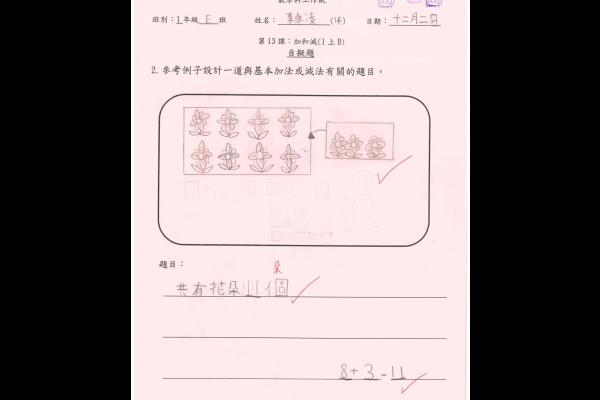 班別：1年級E班 姓名： (14) 日期：十二月二日
第13課：加和減(1上B)
自擬題
2. 參考例子設計一道與基本加法或減法有關的題目。
題目：
朵
共有花朵11個
8+3-11